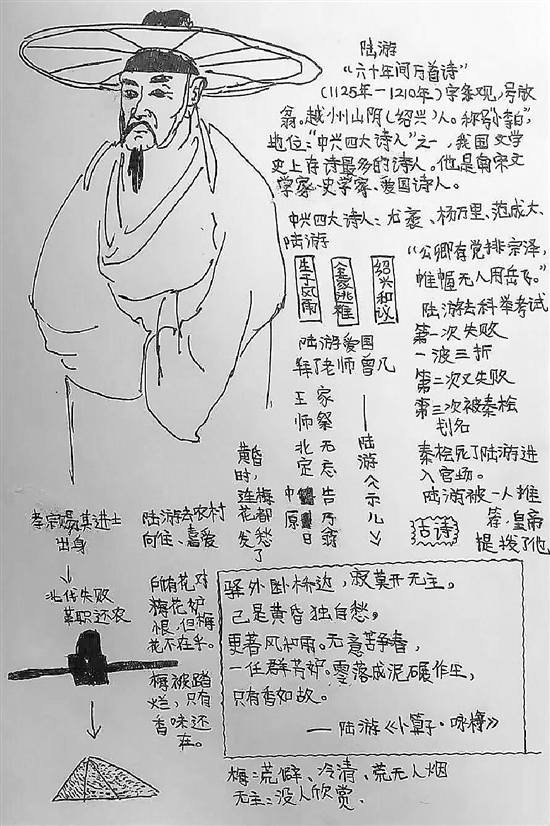 陆游
“六十年间万首诗”
(1125年—1210年)字务观,号放
翁。越州山阴(绍兴)人。称号“小李白”,
地位:“中兴四大诗人”之一,我国文学
史上存诗最多的诗人。他是南宋文
学家、史学家、爱国诗人。
中兴四大诗人:尤袤、杨万里、范成大、
陆游
生于风雨
全家逃难
绍兴和议
“公卿有党排宗泽,
帷幄无人用岳飞。”
陆游去科举考试
第一次失败
一波三折
第二次又失败
第三次被秦桧
划名
秦桧死了陆游进
入官场。
陆游被一人推
荐,皇帝
提拨了他
古诗
陆游爱国
拜了老师曾几
王师北定中原日
家祭无忘告乃翁
——陆游《示儿》
黄昏时,
连梅花都
发愁了
孝宗赐其进士
出身
北伐失败
革职还农
陆游去农村
向往、喜爱
所有花对
梅花妒
恨,但梅
花不在乎。
梅被踏
烂,只有
香味还
在。
驿外卧桥边,寂莫开无主。
已是黄昏独自愁,
更著风和雨。无意苦争春,
一任群芳妒。零落成泥碾作尘,
只有香如故。
——陆游《卜算子·咏梅》
梅:荒僻、冷清、荒无人烟
无主:没人欣赏.